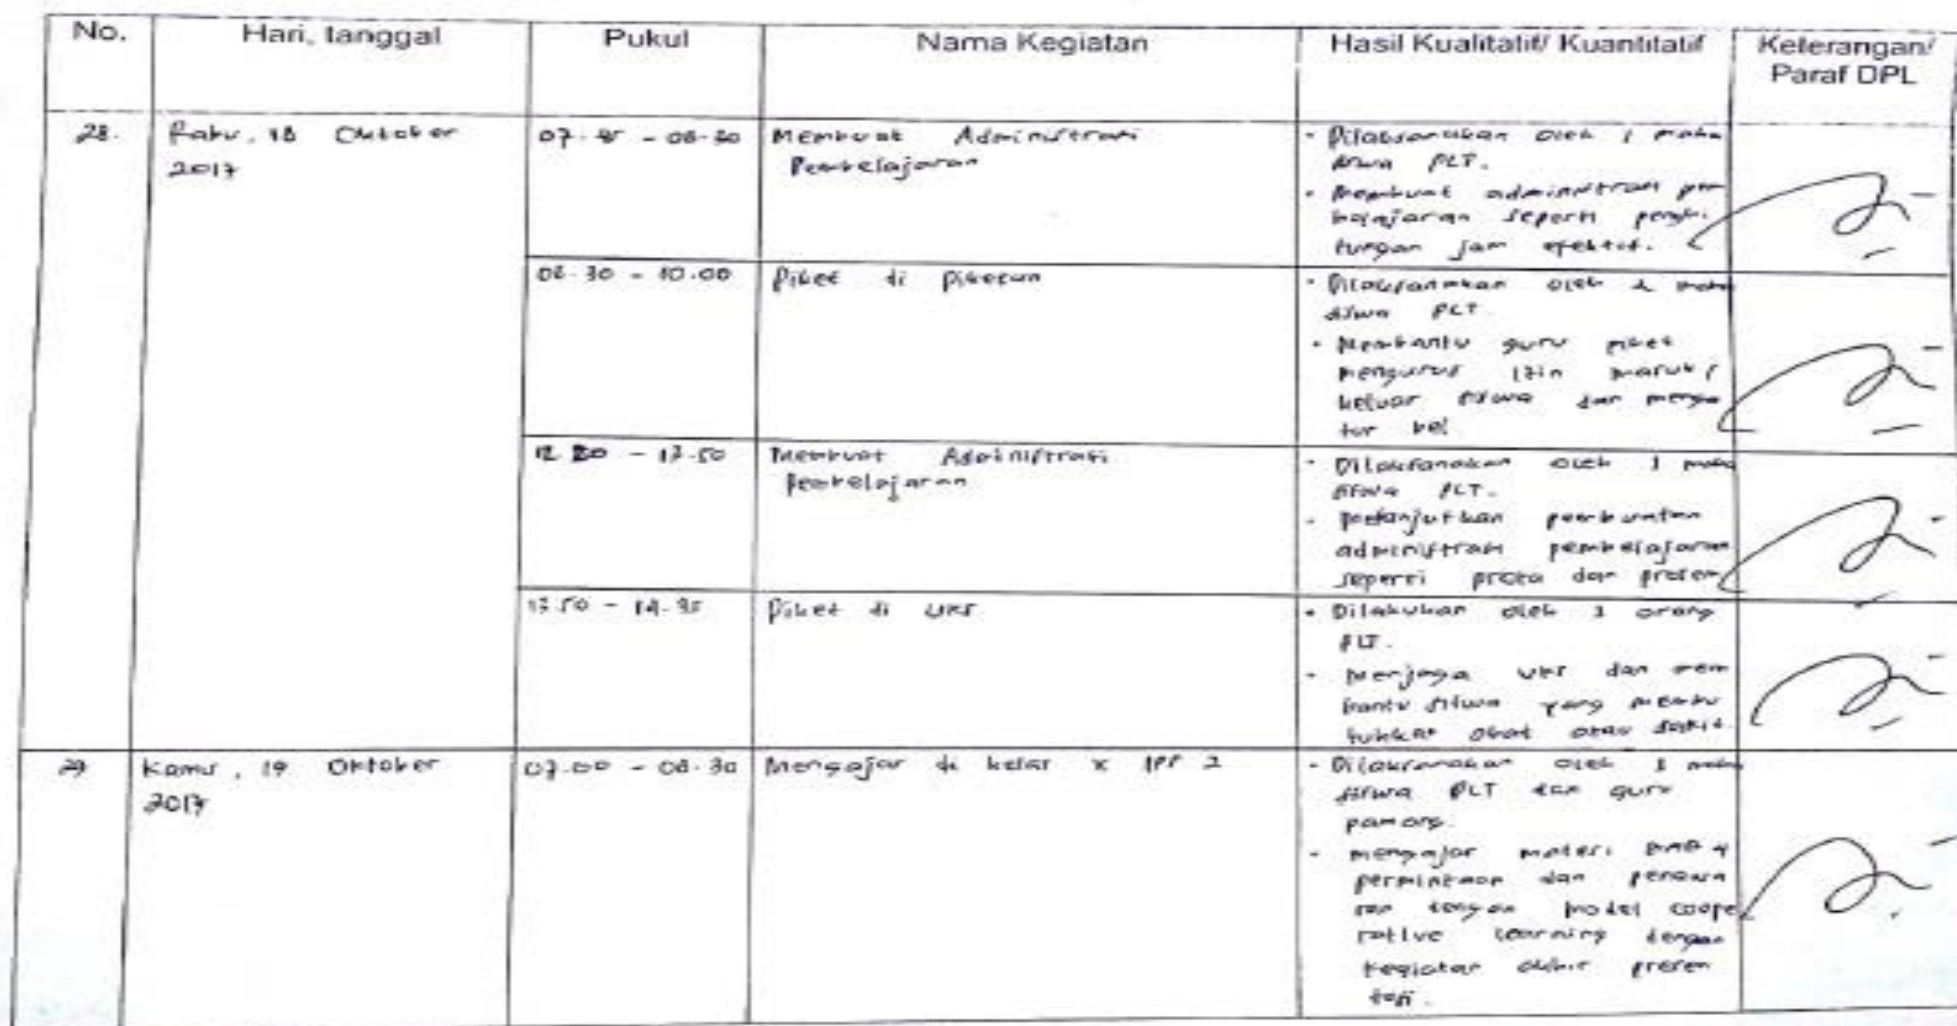 No. Hari, tanggal Pukul Nama Kegiatan Hasil Kualitatif/ Kuantitatif Keterangan/
Paraf DPL
28. Rabu, 18 Oktober 07.45 - 08.30 Membuat Administrasi - Dilaksanakan oleh 1 maha
2017 Pembelajaran siswa PLT.
- Membuat administrasi pem
belajaran seperti penghi
tungan jam efektif.
08.30 - 10.00 Piket di Piketan - Dilaksanakan oleh maha
siswa PLT.
- Membantu guru piket
mengurus izin masuk/
keluar siswa dan menga
tur bel.
12.20 - 13.50 Membuat Administrasi - Dilaksanakan oleh 1 maha
Pembelajaran siswa PLT.
- Melanjutkan pembuatan
administrasi pembelajaran
seperti prota dan prosem
13.50 - 14.35 Piket di UKS - Dilakukan oleh 1 orang
PLT.
- Menjaga UKS dan mem
bantu siswa yang membu
tuhkan obat atau sakit.
29 Kamis, 19 Oktober 07.00 - 08.30 Mengajar di kelas X IPS 2 - Dilaksanakan oleh 1 maha
2017 siswa PLT dan guru
pamong.
- mengajar materi BAB 4
permintaan dan penawa
ran dengan model coope
rative learning dengan
kegiatan akhir presen
tasi.